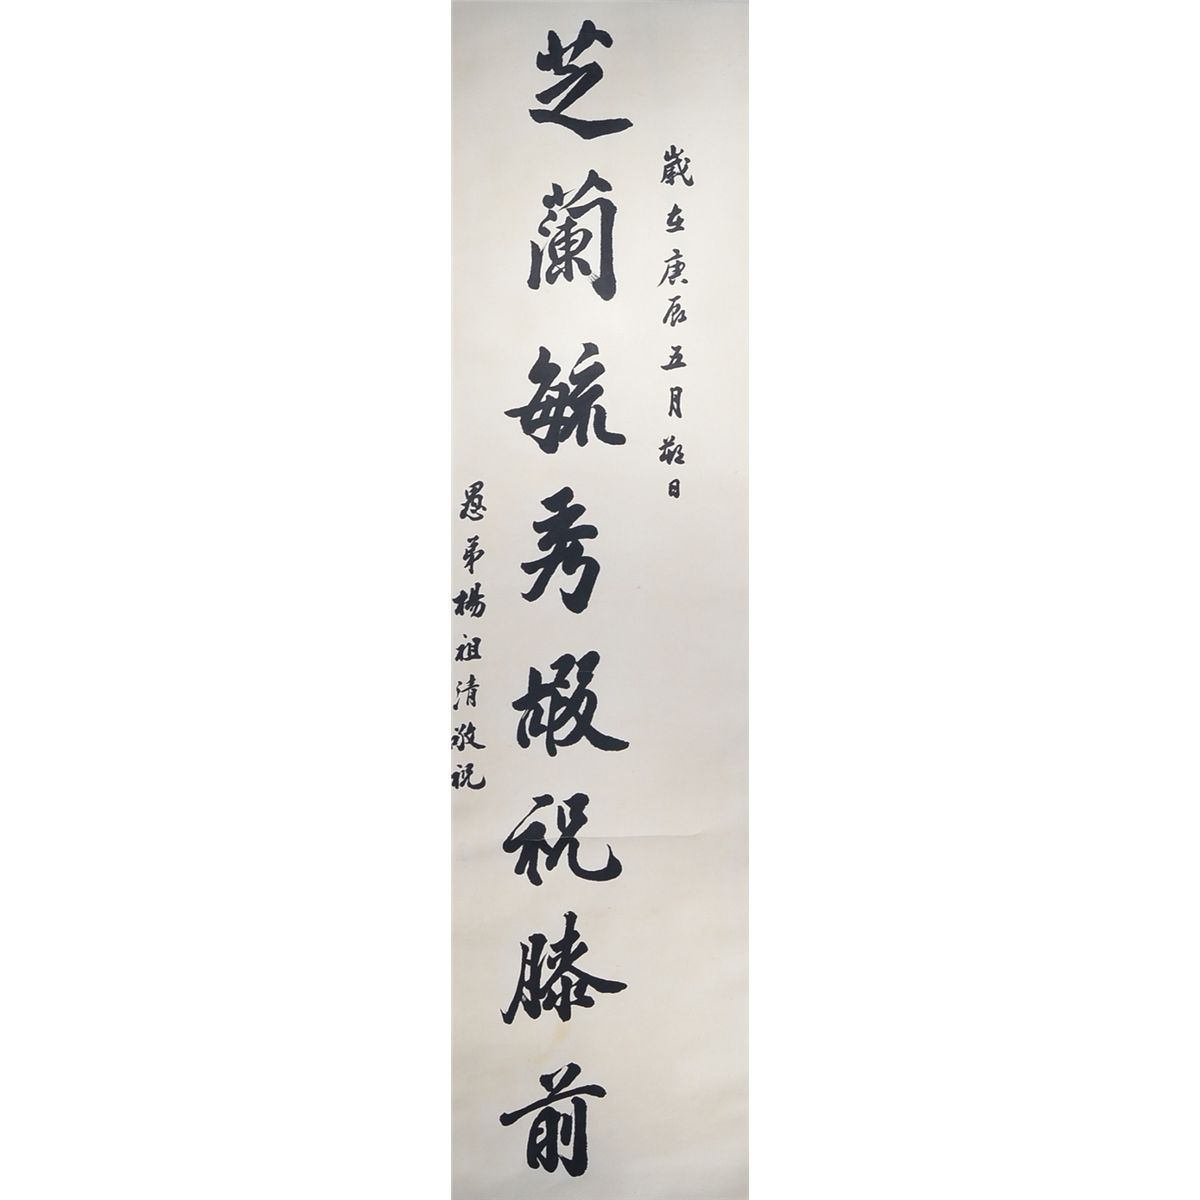 歲在庚辰五月蕤日
芝蘭毓秀嘏祝膝前
愚弟楊祖清敬祝